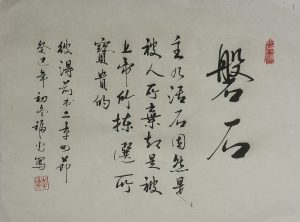 磐石
主乃活石固然是
被人所棄却是被
上帝所揀選所
寶貴的
彼得前书二章四節
癸巳年初冬福水寫